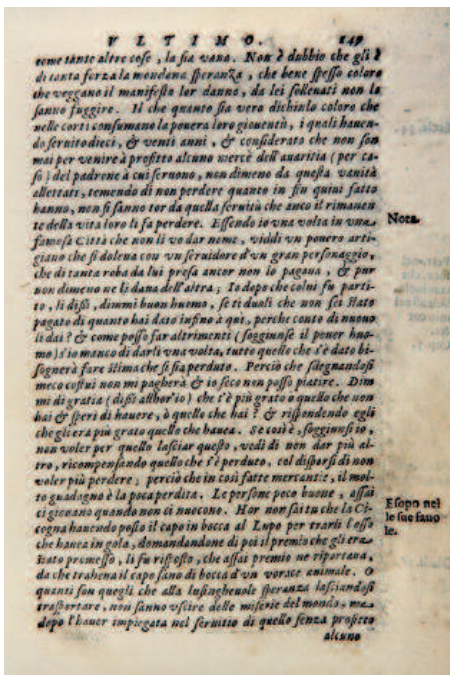 VLTIMO. 149
come tante altre cose, la sia vana. Non è dubbio che gli è
di tanta forza la mondana speranza, che bene spesso coloro
che veggano il manifesto lor danno, da lei sollenati non lo
sanno fuggire. Il che quanto sia vero dichinlo coloro che
nelle corti consumano la pouera loro giouentù, i quali hauen-
do seruito dieci, & venti anni, & considerato che non son
mai per venire à profitto alcuno mercè dell'auaritia (per ca-
so) del padrone à cui seruono, non dimeno da questa vanità
allettati, temendo di non perdere quanto in fin quini fatto
hanno, non si sanno tor da quella seruitù che anco il rimanen
te della vita loro li fa perdere. Essendo io vna volta in vna
famosa Città che non li vo dar nome, viddi vn pouero arti-
giano che si dolena con vn seruidore d'vn gran personaggio,
che di tanta roba da lui presa ancor non lo pagaua, & pur
non dimeno ne li daua dell'altra; Io dopo che colui fu parti-
to, li dissi, dimmi buon huomo, se ti duali che non sei stato
pagato di quanto hai dato infino à qui, perche conto di nuouo
li dai? & come posso far altrimenti (soggiunse il pouer huo-
mo) s'io manco di darli vna volta, tutto quello che s'è dato bi-
sognerà fare stima che si sia perduto. Perciò che sdegnandosi
meco costui non mi pagherà & io seco non posso piatire. Dim
mi di gratia (dissi allhor'io) che t'è più grato o quello che non
hai & speri di hauere, ò quello che hai? & rispondendo egli
che gli era più grato quello che hauea. Se così è, soggiunsi io,
non voler per quello lasciar questo, vedi di non dar più al-
tro, ricompensando quello che s'è perduto, col disporsi di non
voler più perdere; perciò che in così fatte mercantie, il mol-
to guadagno è la poca perdita. Le persone poco buone, assai
ci giouano quando non ci nuocono. Hor non sai tu che la Ci-
cogna hauendo posto il capo in bocca al Lupo per trarli l'osso
che hauea in gola, domandandone di poi il premio che gli era
stato promesso, li fu risposto, che assai premio ne riportaua,
da che trahena il capo sano di bocca d'vn vorace animale. O
quanti son quegli che alla lusingheuole speranza lasciandosi
trasportare, non sanno vscire delle miserie del mondo, ma
dopo l'hauer impiegata nel seruitio di quello senza profitto
alcuno
Nota.
Esopo nel
le sue fauo
le.